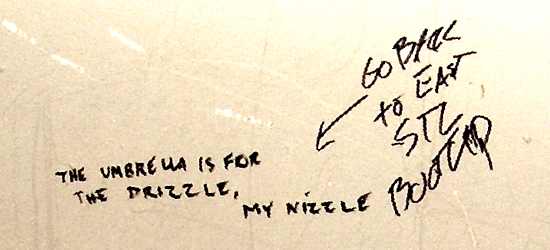 THE UMBRELLA IS FOR
THE DRIZZLE,
MY NIZZLE
GO BACK
TO EAST
STL